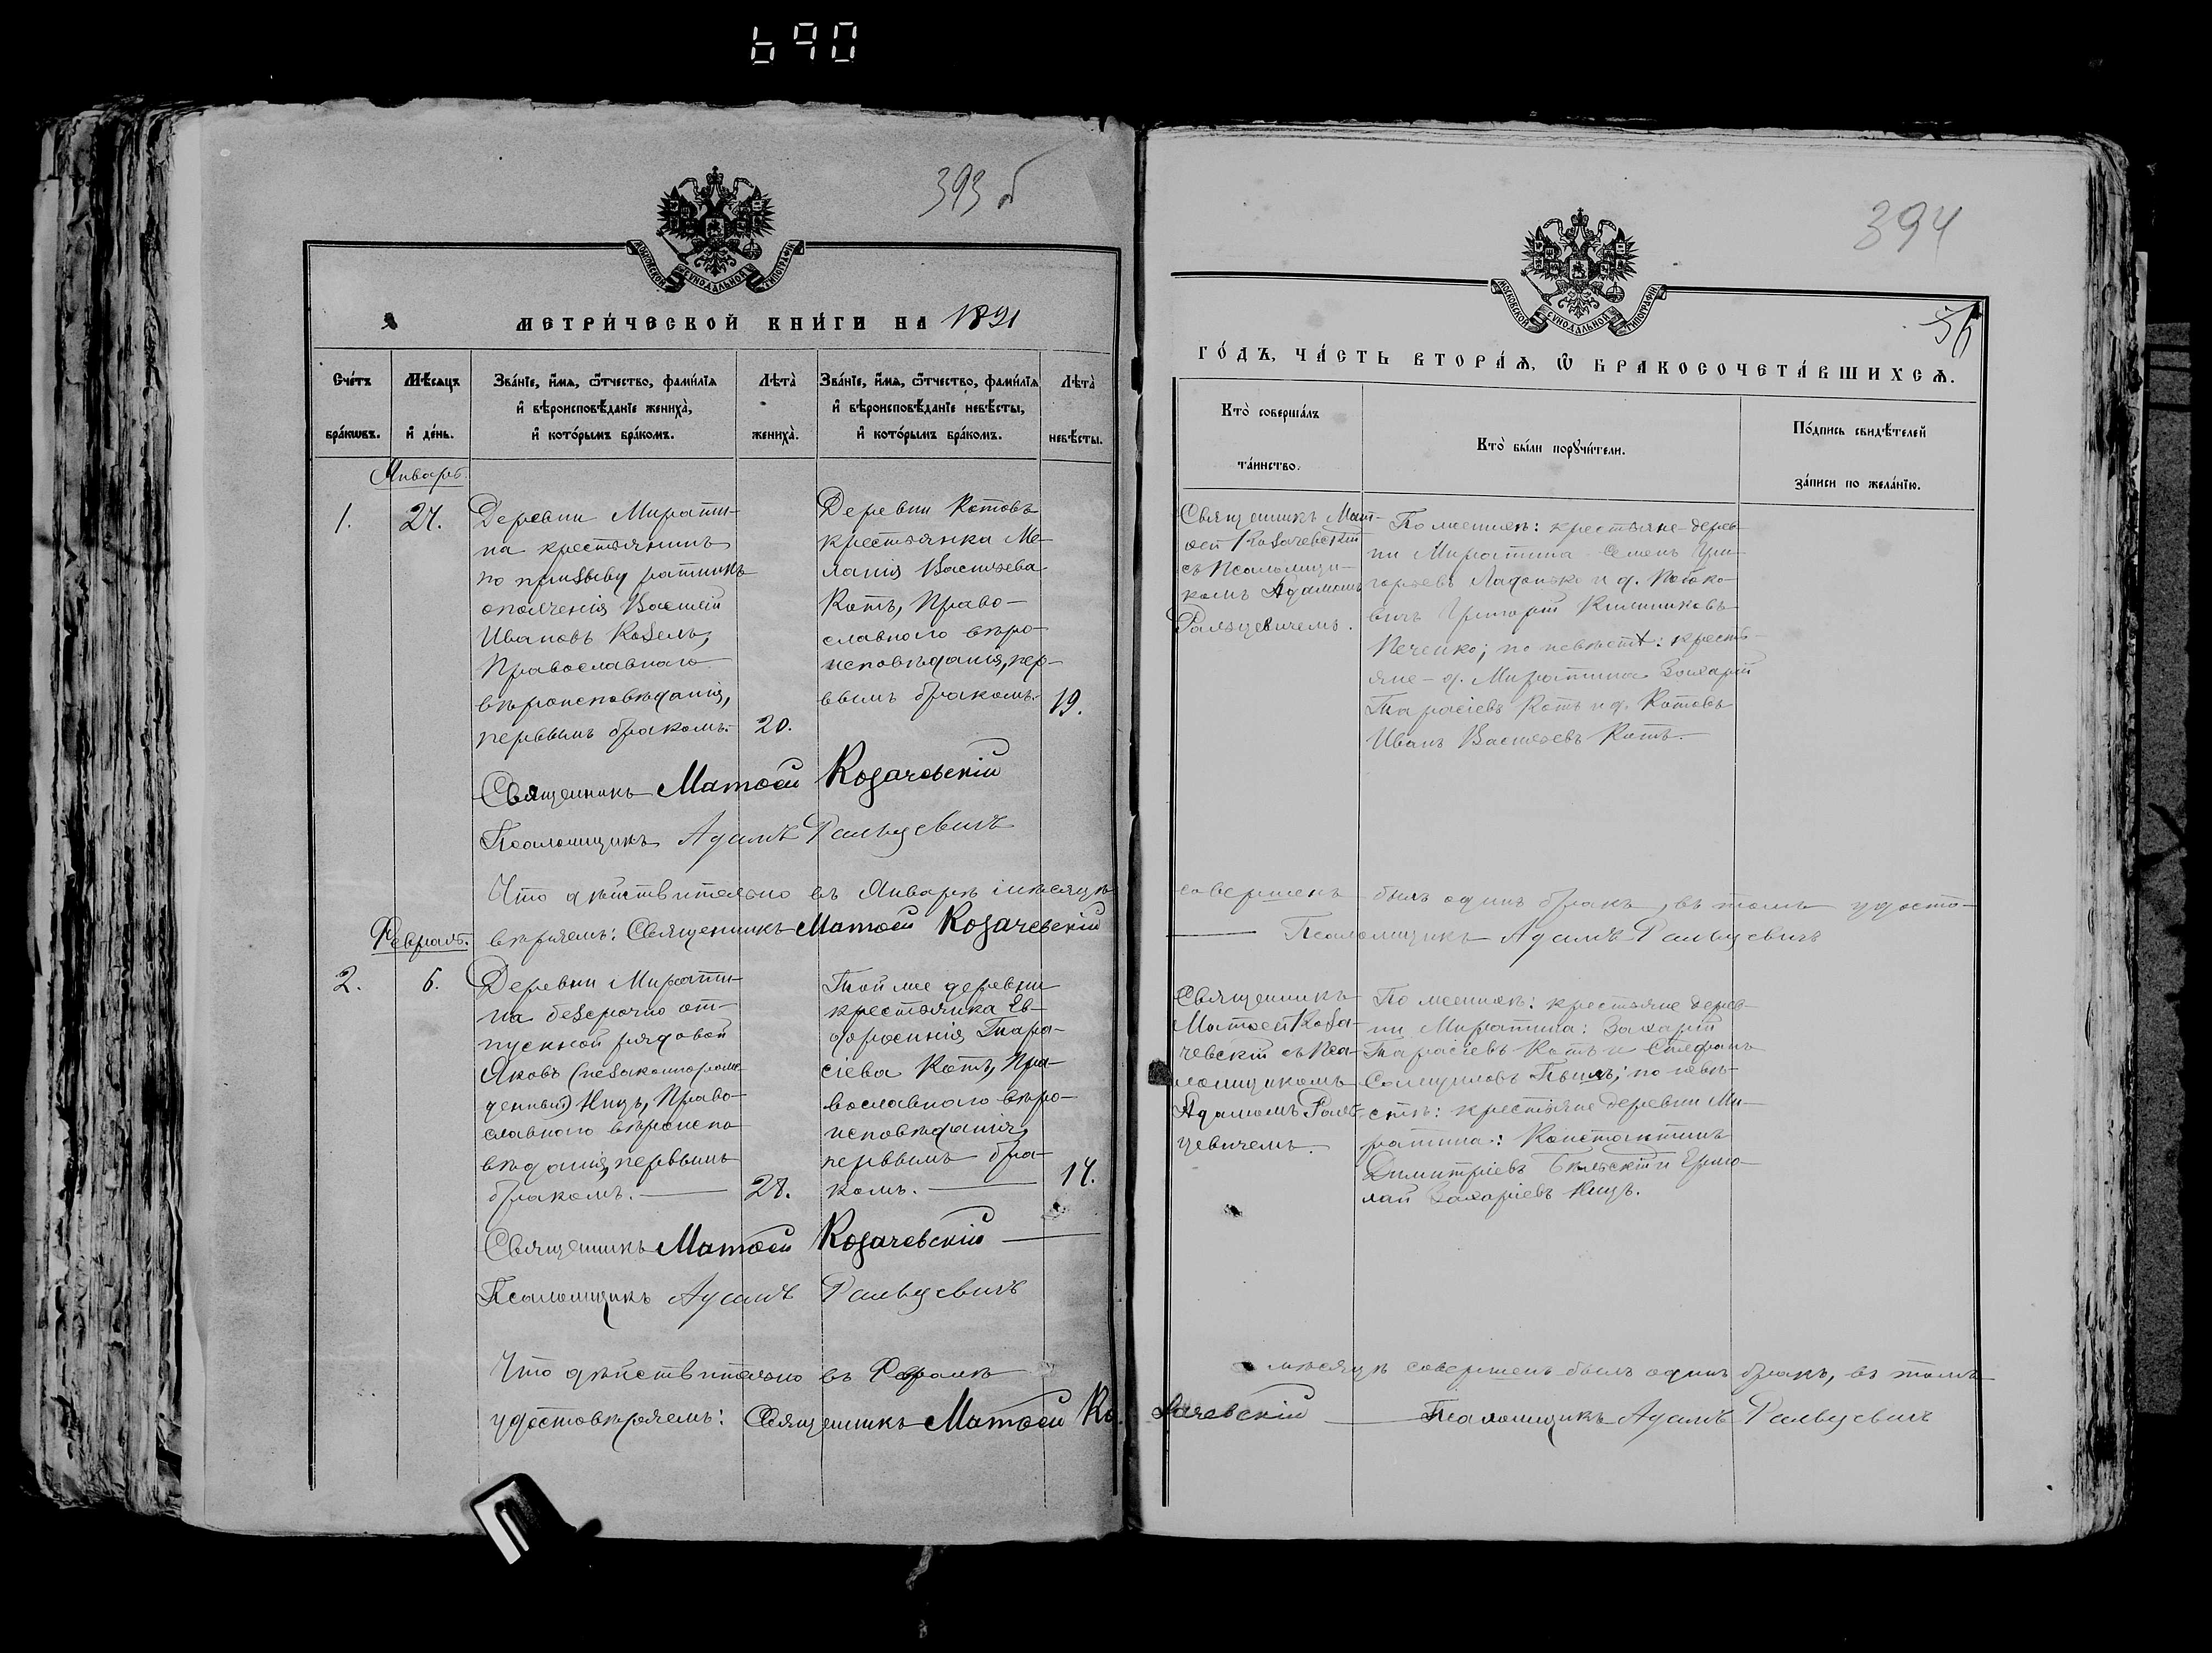 690
393 б
МОСКОВСКОЙ СУНОДАЛЬНОЙ ТИПОГРАФІИ
МЕТРИ́ЧЕСКОЙ КНИ́ГИ НА 1891
Сче́тъ бра́кωвъ.
Мѣ́сяцъ и҆ де́нь.
Зва́нїе, и҆́мѧ, ѻ҆́тчество, фами́лїѧ
и҆ вѣроисповѣ́данїе жениха̀,
и҆ кото́рымъ бра́комъ.
Лѣта̀
жениха̀.
Зва́нїе, и҆́мѧ, ѻ҆́тчество, фами́лїѧ
и҆ вѣроисповѣ́данїе невѣ́сты,
и҆ кото́рымъ бра́комъ.
Лѣта̀
невѣ́сты.
Январь.
1.
27.
Деревни Мирати-
на крестьянинъ
по призыву ратникъ
ополченія Василій
Ивановъ Козелъ,
Православнаго
вѣроисповѣданія,
первымъ бракомъ.
20.
Деревни Котовъ
крестьянка Ме-
ланія Васильева
Котъ, Право-
славнаго вѣро-
исповѣданія, пер-
вымъ бракомъ.
19.
Священникъ Матѳей Козачевскій
Псаломщикъ Адамъ Ральцевичъ
Что дѣйствительно въ Январѣ мѣсяцѣ
Февраль.
вѣряемъ: Священникъ Матѳей Козачевскій
2.
6.
Деревни Мирати-
на безсрочно от-
пускной рядовой
Яковъ (незаконнорож-
денный) Кицъ, Право-
славнаго вѣроиспо
вѣданія, первымъ
бракомъ.
28.
Той же деревни
крестьянка Ев-
фросинія Тара-
сіева Котъ, Пра-
вославнаго вѣро-
исповѣданія,
первымъ бра-
комъ.
17.
Священникъ Матѳей Козачевскій
Псаломщикъ Адамъ Ральцевичъ
Что дѣйствительно въ Февралѣ
удостовѣряемъ: Священникъ Матѳей Ко-
394
56
МОСКОВСКОЙ СУНОДАЛЬНОЙ ТИПОГРАФІИ
ГО́ДЪ, ЧА́СТЬ ВТОРА́Ѧ, Ѽ БРАКОСОЧЕТА́ВШИХСѦ.
Кто̀ соверша́лъ
та́инство.
Кто̀ бы́ли порꙋчи́тели.
По́дпись свидѣ́телей
за́писи по жела́нїю.
Священникъ Мат-
ѳей Козачевскій
съ Псаломщи-
комъ Адамомъ
Ральцевичемъ.
По женихѣ: крестьяне дерев-
ни Миратина Семенъ Гри-
горьевъ Ладонько и д.
Григорій
Печенко; по невѣстѣ: кресть-
яне д. Миратина Захарій
Тарасіевъ Котъ и д. Котовъ
Иванъ Васильевъ Котъ.
совершенъ былъ одинъ бракъ, въ томъ удосто-
Псаломщикъ Адамъ Ральцевичъ
Священникъ
Матѳей Коза-
чевскій съ Пса-
ломщикомъ
Адамомъ Раль-
цевичемъ.
По женихѣ: крестьяне дерев-
ни Миратина: Захарій
Тарасіевъ Котъ и Стефанъ
по невѣ-
стѣ: крестьяне деревни Ми-
ратина: Константинъ
Димитріевъ Бѣльскій и Ермо-
лай Захаріевъ Кицъ.
мѣсяцѣ совершенъ былъ одинъ бракъ, въ томъ
зачевскій Псаломщикъ Адамъ Ральцевичъ